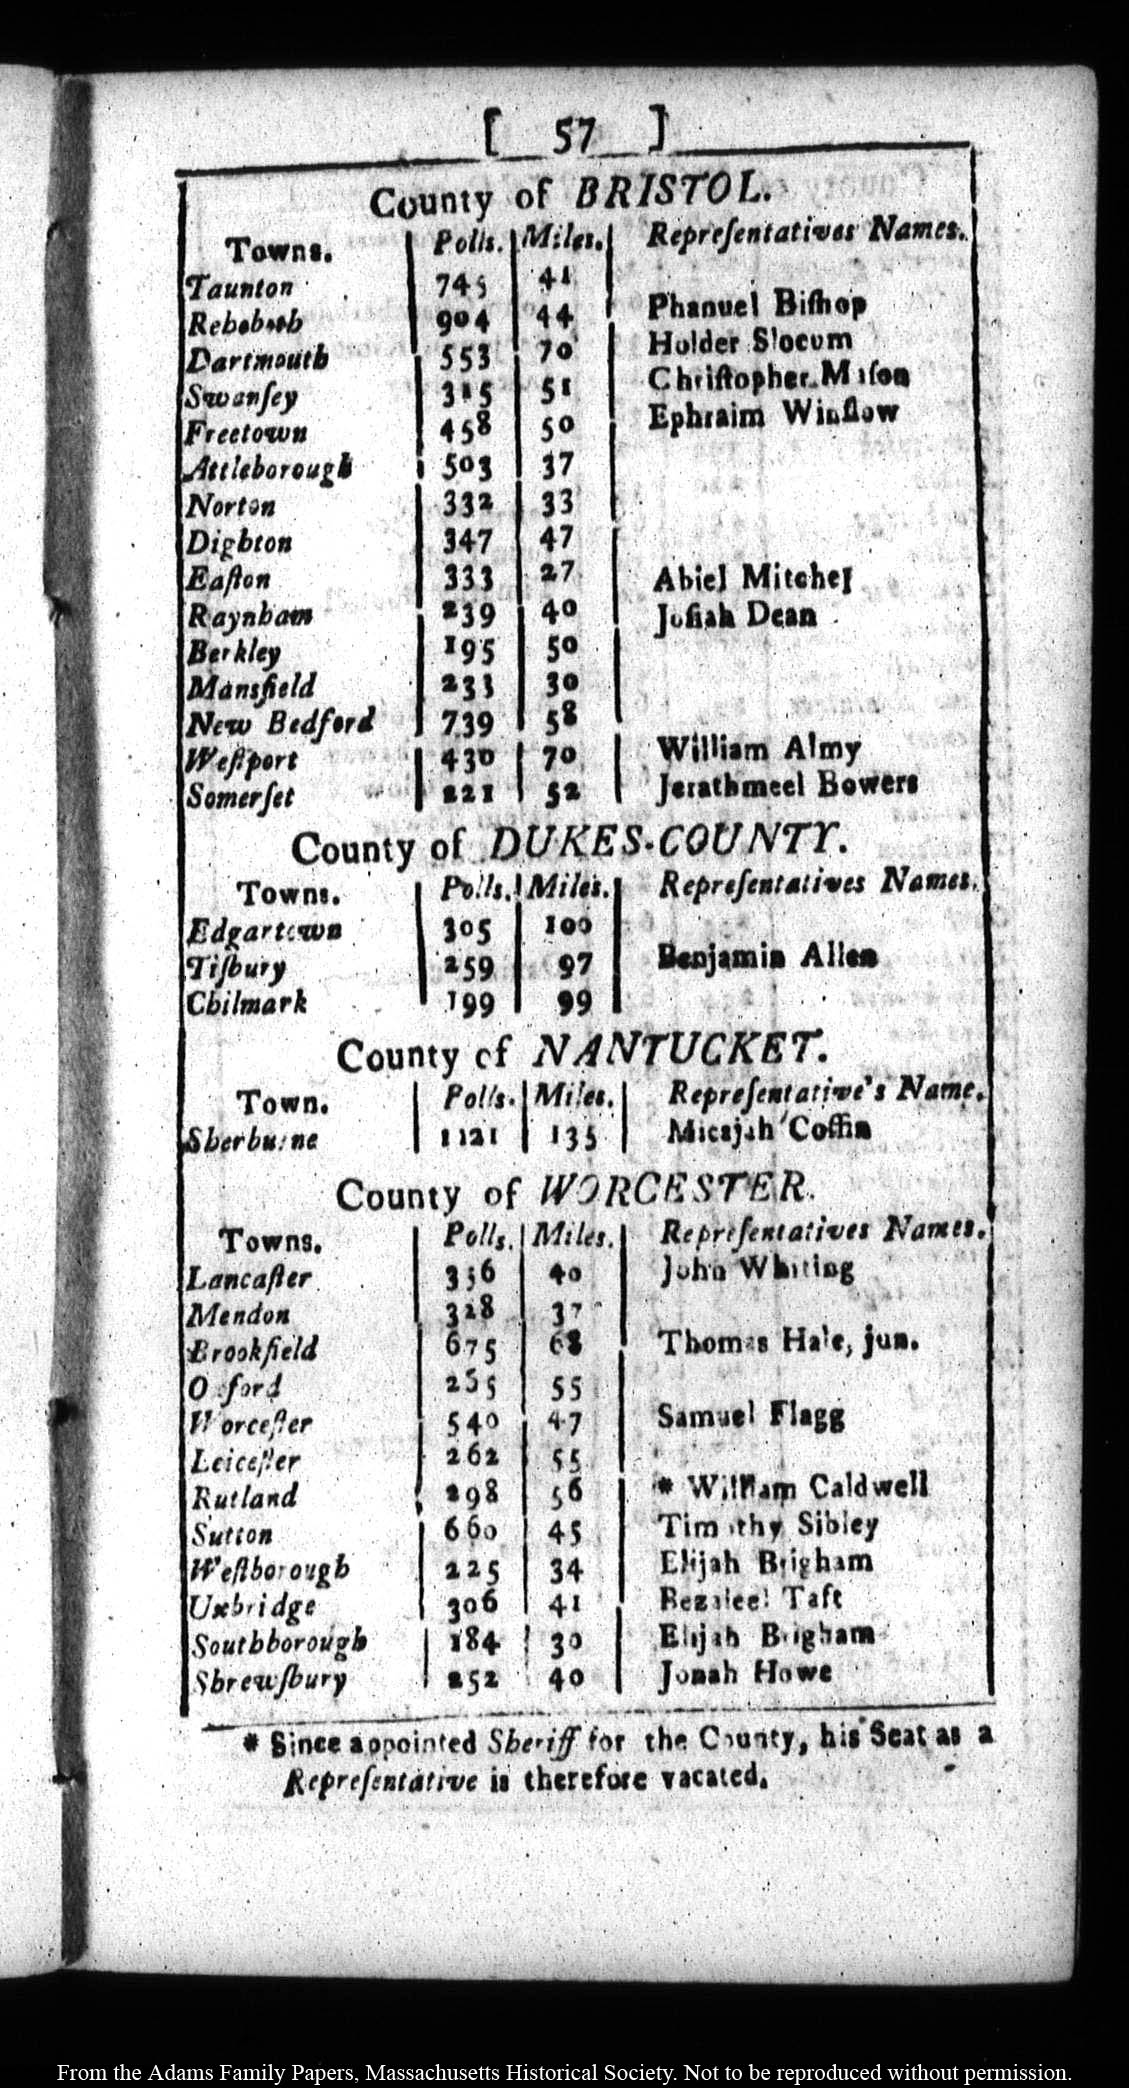 [ 57 ]
County of BRISTOL.
Towns. Polls. Miles. Repreſentatives Names.
Taunton 745 41
Rehoboth 904 44 Phanuel Biſhop
Dartmouth 553 70 Holder Slocum
Swanſey 315 51 Chriſtopher Maſon
Freetown 458 50 Ephraim Winſlow
Attleborough 503 37
Norton 332 33
Dighton 347 47
Eaſton 333 27 Abiel Mitchel
Raynham 239 40 Joſiah Dean
Berkley 195 50
Mansfield 233 30
New Bedford 739 58
Weſtport 430 70 William Almy
Somerſet 221 52 Jerathmeel Bowers
County of DUKES-COUNTY.
Towns. Polls. Miles. Repreſentatives Names.
Edgartown 305 100
Tiſbury 259 97 Benjamin Allen
Chilmark 199 99
County of NANTUCKET.
Town. Polls. Miles. Repreſentative's Name.
Sherburne 1121 135 Micajah Coffin
County of WORCESTER.
Towns. Polls. Miles. Repreſentatives Names.
Lancaſter 40 John Whiting
Mendon 328 37
Brookfield 675 68 Thomas Hale, jun.
Oxford 55
Worceſter 540 47 Samuel Flagg
Leiceſter 262 55
Rutland 298 56 * William Caldwell
Sutton 660 45 Timothy Sibley
Weſtborough 225 34 Elijah Brigham
Uxbridge 306 41 Bezaleel Taft
Southborough 184 30 Elijah Brigham
Shrewſbury 252 40 Jonah Howe
* Since appointed Sheriff for the County, his Seat as a
Repreſentative is therefore vacated.
From the Adams Family Papers, Massachusetts Historical Society. Not to be reproduced without permission.